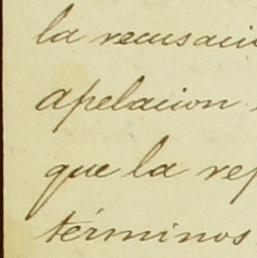 la recusació
apelacion
que la rep
términos